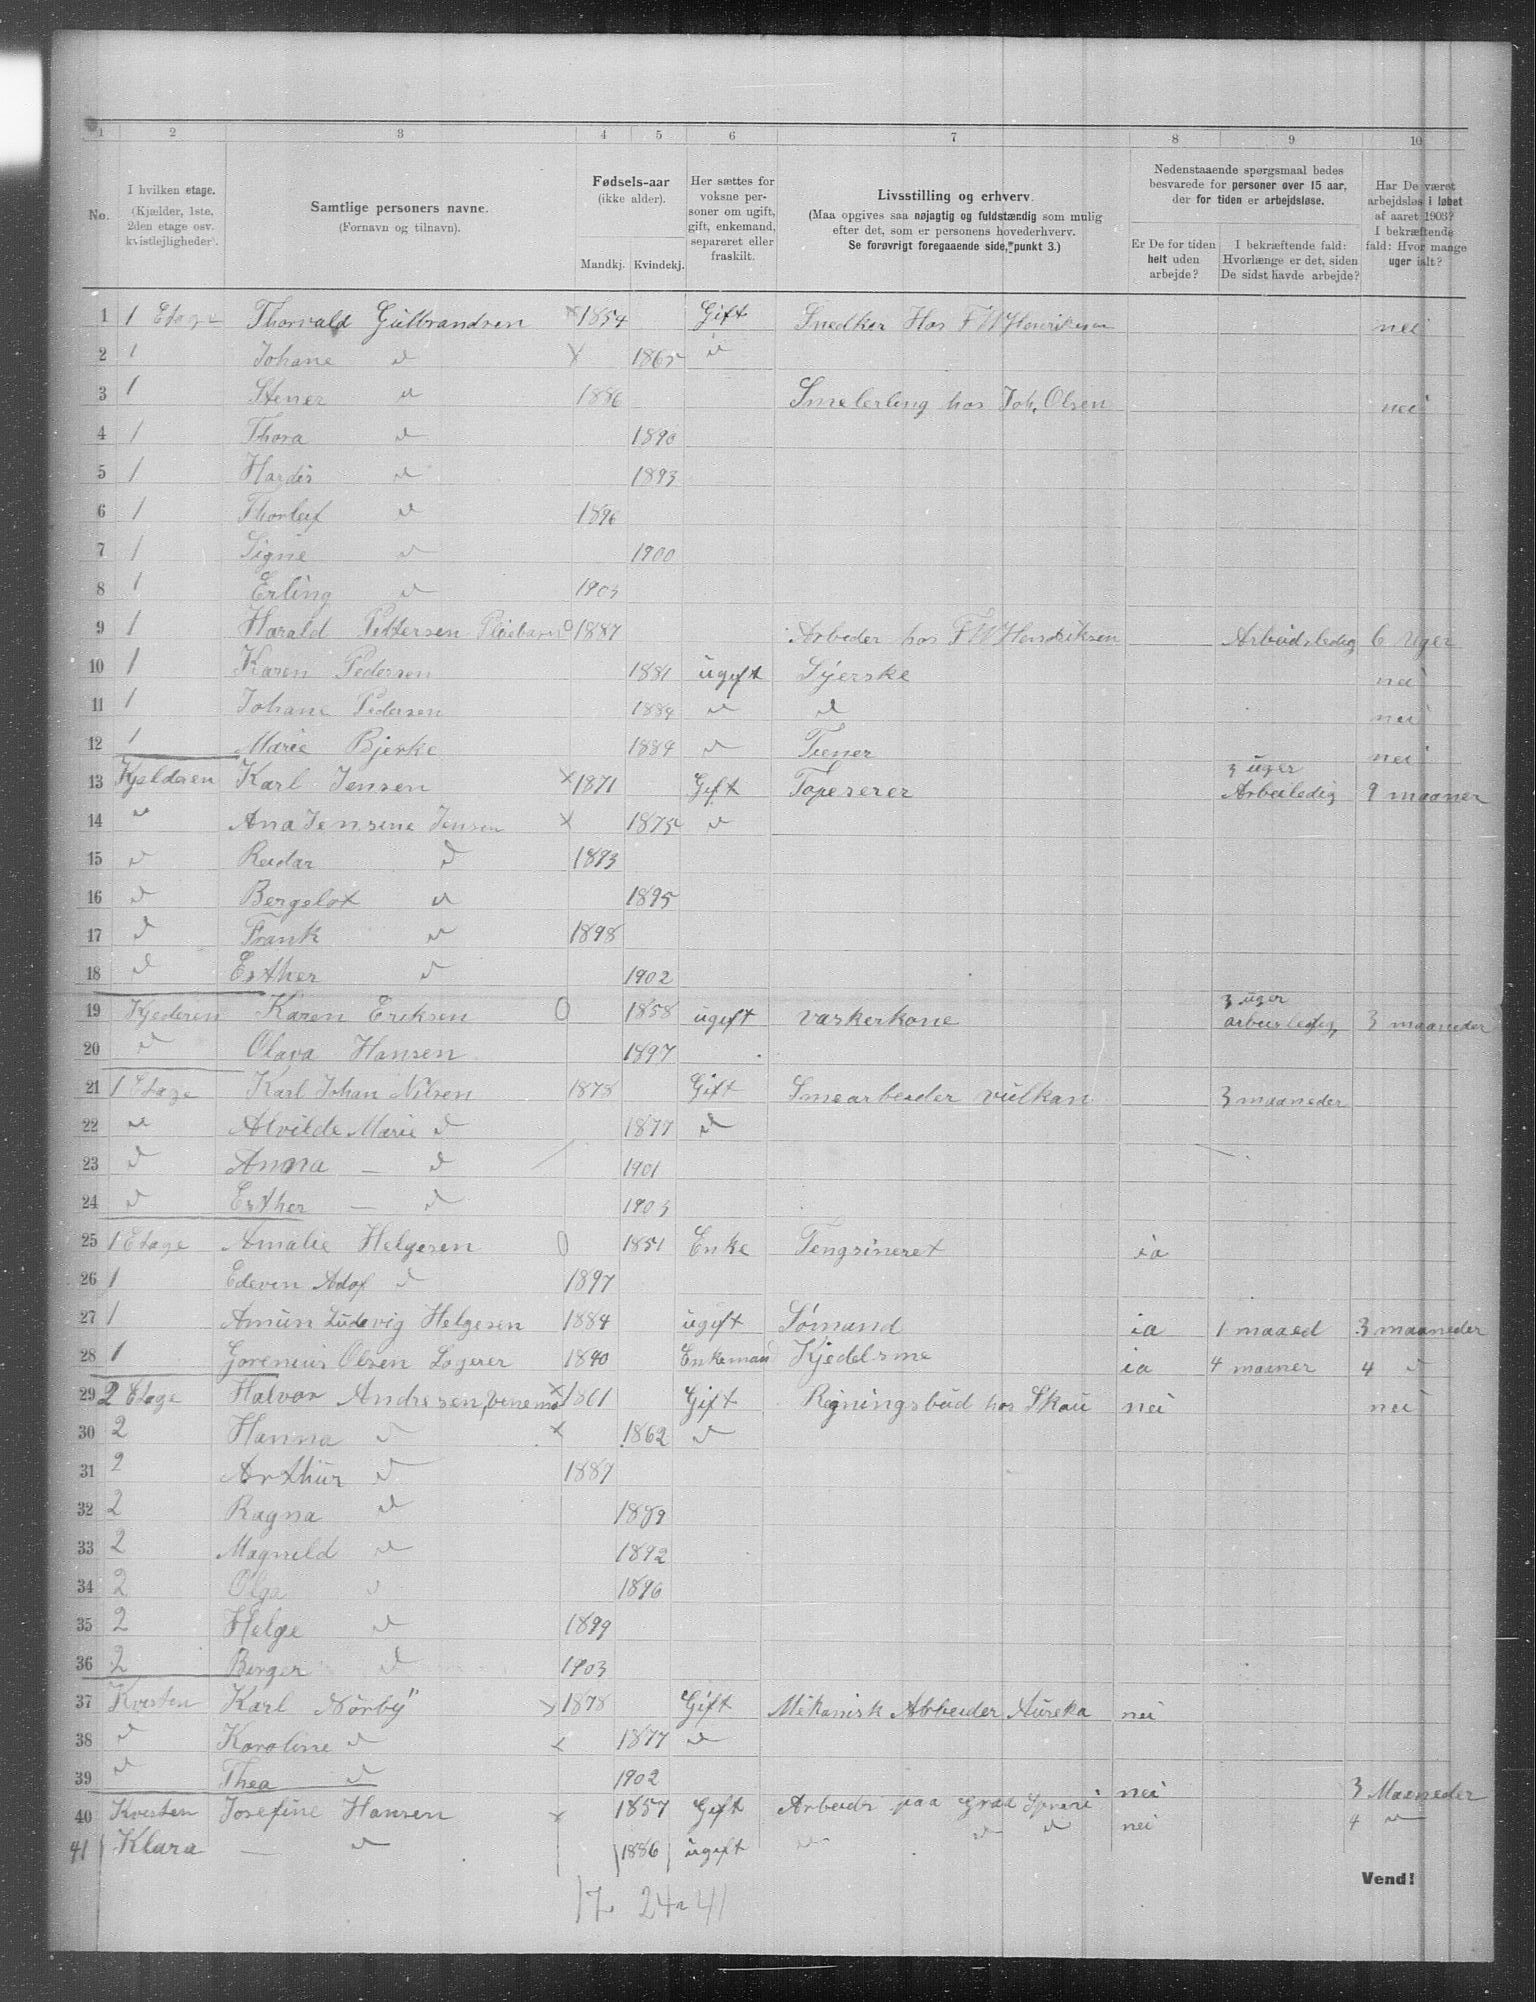 1 2 3 4 5 6 7 8 9 10
No.
I hvilken etage.
(Kjælder, 1ste, 2den etage osv. kvistlejligheder).
Samtlige personers navne.
(Fornavn og tilnavn).
Fødsels-aar
(ikke alder).
Mandkj. Kvindekj.
Her sættes for voksne personer om ugift, gift, enkemand, separeret eller fraskilt.
Livsstilling og erhverv.
(Maa opgives saa nøjagtig og fuldstændig som mulig efter det, som er personens hovederhverv.
Se forøvrigt foregaaende side, punkt 3.)
Nedenstaaende spørgsmaal bedes besvarede for personer over 15 aar, der for tiden er arbejdsløse.
Er De for tiden helt uden arbejde?
I bekræftende fald: Hvorlænge er det, siden De sidst havde arbejde?
Har De været arbejdsløs i løbet af aaret 1903? I bekræftende fald: Hvor mange uger ialt?
1 1 Etage Thorvald Gulbrandsen × 1854 Gift Snedker Hos F W Henriksen nei
2 1 Johane d × 1865 d
3 1 Stener d 1886 Smelerling hos Joh. Olsen nei
4 1 Thora d 1890
5 1 Hardis d 1893
6 1 Thorleif d 1896
7 1 Signe d 1900
8 1 Erling d 1903
9 1 Harald Pettersen Pleiebarn 0 1887 Arbeder hos F W Hendriksen Arbeidsledig 6 uger
10 1 Karen Pedersen 1881 ugift Syerske nei
11 1 Johane Pedersen 1884 d d nei
12 1 Marie Bjerke 1884 d Tiener nei
13 Kjelderen Karl Jensen × 1871 Gift Tapeserer 3 uger Arbeiledig 9 maaner
14 d Ana Jensine Jensen × 1875 d
15 d Reidar d 1893
16 d Bergelot d 1895
17 d Frank d 1898
18 d Esther d 1902
19 Kjederen Karen Eriksen 0 1858 ugift vaskerkone 3 uger arbeisledig 3 maaneder
20 d Olava Hansen 1897
21 1 Etage Karl Johan Nilsen 1878 Gift Smearbeider vulkan 3 maaneder
22 d Alvilde Marie d 1877 d
23 d Anna — d 1901
24 d Esther — d 1903
25 1 Etage Amalie Helgesen 0 1851 Enke Tengsineret ia
26 1 Edevin Adof d 1897
27 1 Amun Ludvig Helgesen 1884 ugift Sømand ia 1 maaed 3 maaneder
28 1 Gorenius Olsen Logerer 1840 Enkemand Kjedelsme ia 4 maaner 4 d
29 2 Etage Halvor Andresen, vinemo × 1861 Gift Rigningsbud hos Skau nei nei
30 2 Hanna d × 1862 d
31 2 Arthur d 1887
32 2 Ragna d 1889
33 2 Magnild d 1892
34 2 Olga d 1896
35 2 Helge d 1899
36 2 Berger d 1903
37 Kvisten Karl Nörby × 1878 Gift Mikanisk Abrbeider Aureka nei
38 d Karoline d × 1877 d
39 d Thea d 1902
40 Kvisten Josefine Hansen × 1857 Gift Arbeidr paa nei 3 Maaneder
41 Klara — d 1886 ugift d d d nei 4 d
Vend!
17. 24 = 41